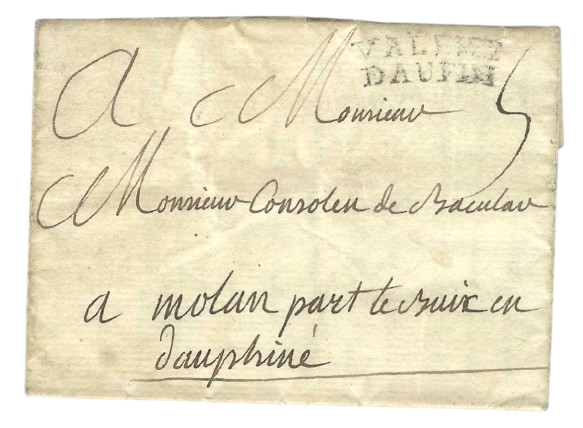 VALENCE
DAUFIN
A Monsieur 5
Monsieur Consolen de Baculav
a molan part le buix en
dauphiné